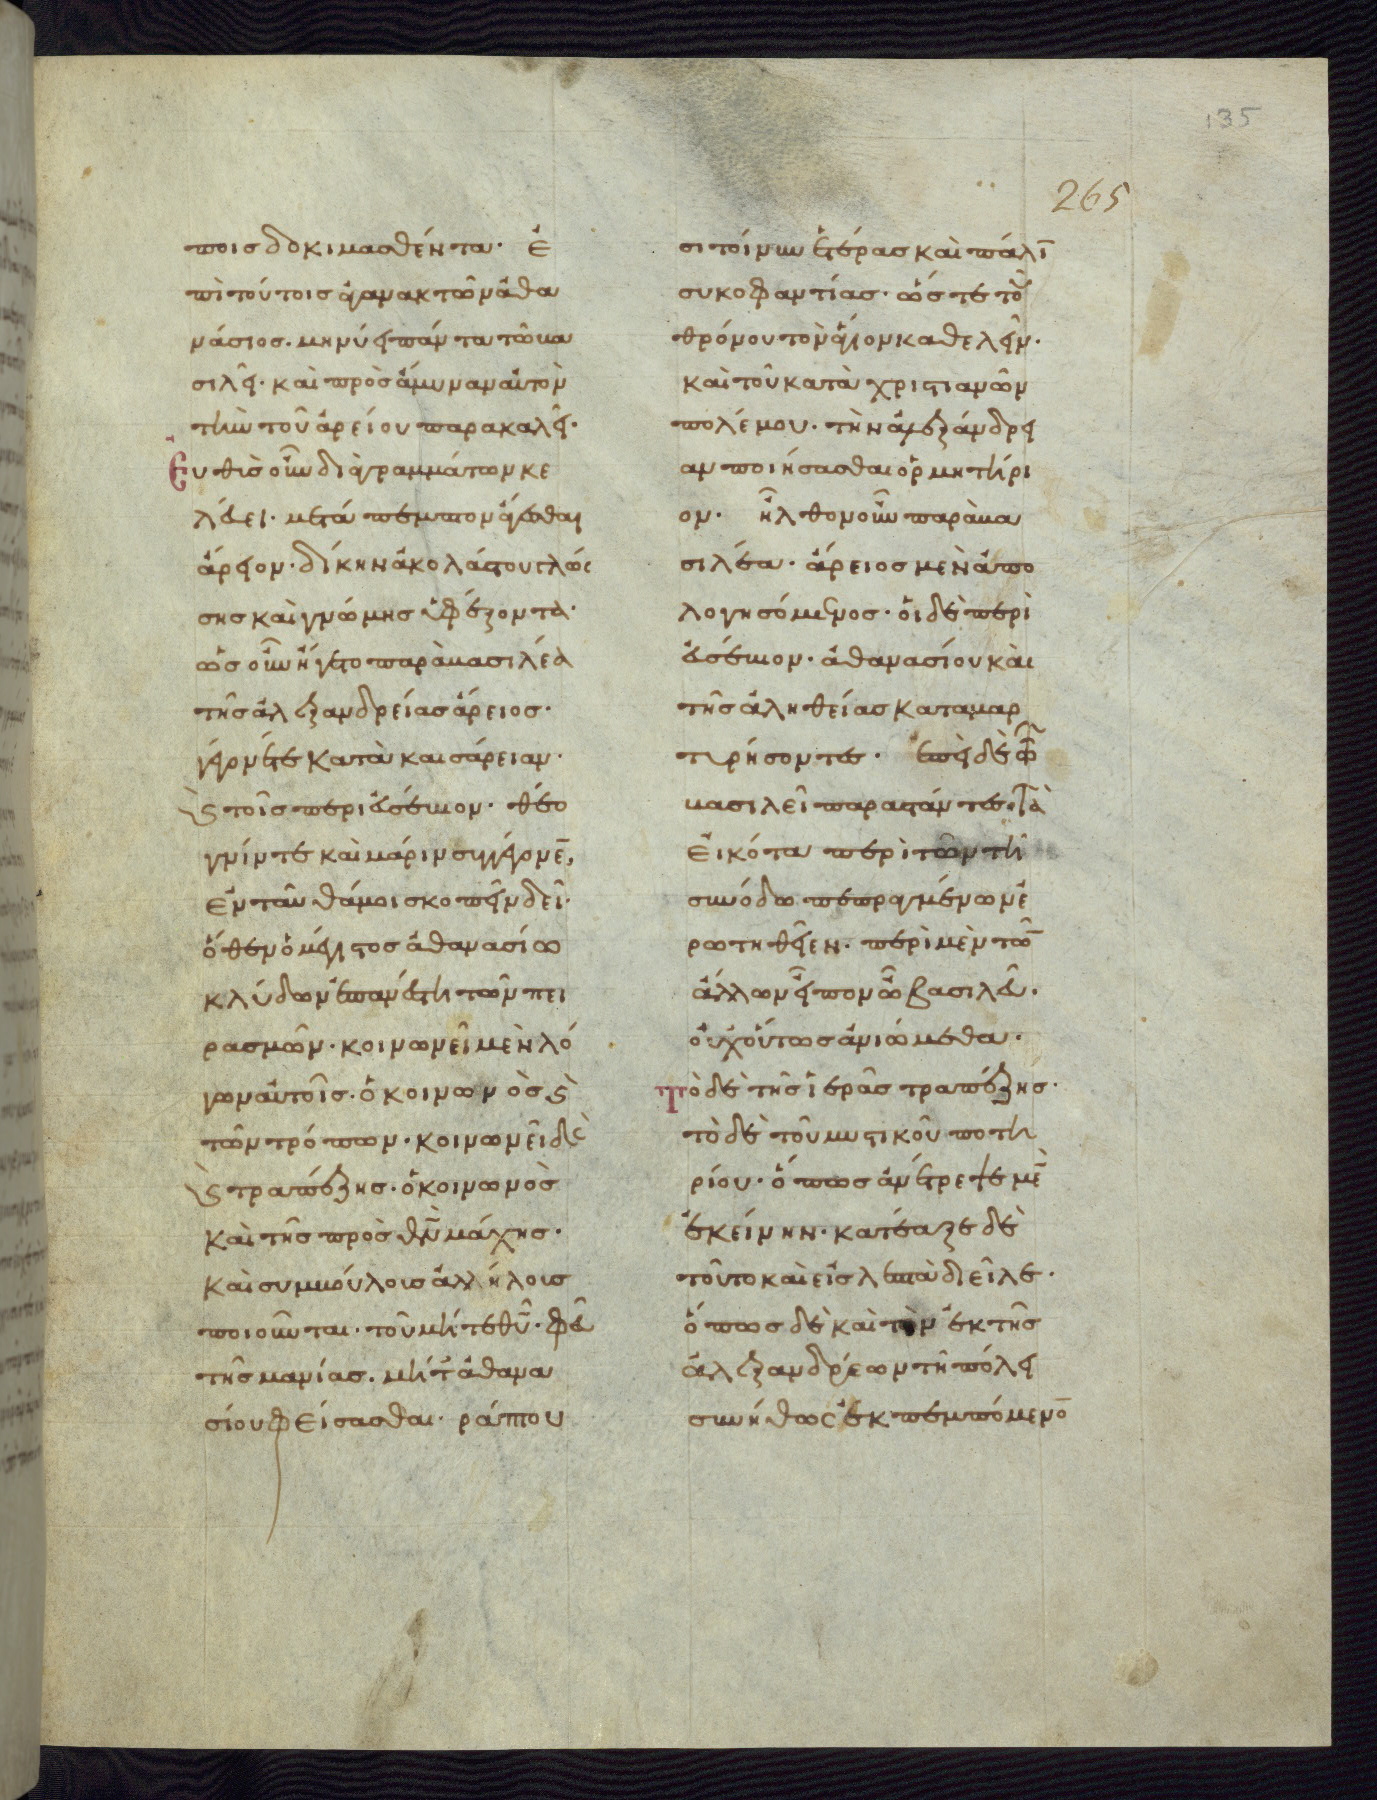 135
265
ποις δοκιμασθέντα· ἐ
πὶ τούτοις ἀγανακτῶν ἀθα
νάσιος. μηνύει πάντα τῶ βα
σιλεῖ· καὶ πρὸς ἄμυναν αὐτὸν
τὴν τοῦ ἀρείου παρακαλεῖ·
Εὐθὺς οὖν διὰ γραμμάτων κε
λεύει. μετάπεμπτον ἄγεσθαι
ἄρειον· δίκην ἀκολάστου γλώσ
σης καὶ γνώμης ὑφέξοντα·
ὡς οὖν ἤγετο παρὰ βασιλέα
τῆς ἀλεξανδρείας ἄρειος·
γίνεται κατὰ καισάρειαν·
καὶ τοῖς περὶ εὐσέβιον· θεο
γνίν τε καὶ μάριν συγγίνεται,
ἐν τῶ θάμνοι σκοπεῖν δεῖ·
ὅθεν ὁ μέγιστος ἀθανασίω
κλύδων ἐπανέστη τῶν πει
ρασμῶν· κοινωνεῖ μὲν λό
γων αὐτοῖς· ὁ κοινωνὸς καὶ
τῶν τρόπων· κοινωνεῖ δὲ
καὶ τραπέζης· ὁ κοινωνὸς
καὶ τῆς πρὸς θν̅ μάχης·
καὶ συμβούλους ἀλλήλους
ποιοῦνται· τοῦ μήτε θυ̅· φεῦ
τῆς μανίας. μήτ ἀθανα
σίου φείσασθαι· ράπτου
σι τοίνυν ἑτέρας καὶ πάλιν
συκοφαντίας· ὥστε τοῦ
θρόνου τὸν ἅγιον καθελεῖν·
καὶ τοῦ κατὰ χριστιανῶν
πολέμου· τὴν ἀλεξάνδρει
αν ποιήσασθαι ὁρμητήρι
ον· ἦλθον οὖν παρὰ βα
σιλέα· ἄρειος μὲν ἀπο
λογησόμενος· οἱ δὲ περὶ
εὐσέβιον· ἀθανασίου καὶ
τῆς ἀληθείας καταμαρ
τυρήσοντες· ἐπεὶ δὲ τῶ
βασιλεῖ παραστάντες τὰ
εἰκότα περὶ τῶν τῆ
συνόδω πεπραγμένων ἐ
ρωτηθεῖεν· περὶ μὲν τῶν
ἄλλων εἶπον ὦ βασιλεῦ·
οὐχ οὕτως ἀνιώμεθα·
Τὸ δὲ τῆς ἱερᾶς τραπέζης·
τὸ δὲ τοῦ μυστικοῦ ποτη
ρίου· ὅπως ἀνέτρεψε μὲν
ἐκείνην· κατέαξε δὲ
τοῦτο καὶ εἰς λεπτὰ διεῖλε·
ὅπως δὲ καὶ τὸν ἐκ τῆς
ἀλεξανδρέων τῆ πόλει
συνήθως ἐκπεμπόμενον